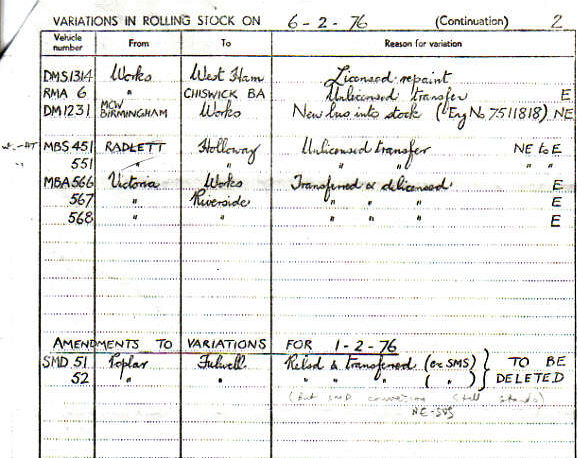 VARIATIONS IN ROLLING STOCK ON 6-2-76 (Continuation) 2
Vehicle number From To Reason for variation
DMS1314 Works West Ham Licensed repaint
RMA 6 " CHISWICK BA Unlicensed transfer E
DM1231 MCW BIRMINGHAM Works New bus into stock (Eng No 7511818) NE
MBS 451 RADLETT Holloway Unlicensed transfer NE to E
551 " " " " " "
MBA566 Victoria Works Transferred & delicensed E
567 " Riverside " " " E
568 " " " " " E
AMENDMENTS TO VARIATIONS FOR 1-2-76
SMD 51 Poplar Fulwell Relsd & transferred (ex SMS) } TO BE
52 " " " " " ( " ) } DELETED
(But SMD conversion still stands)